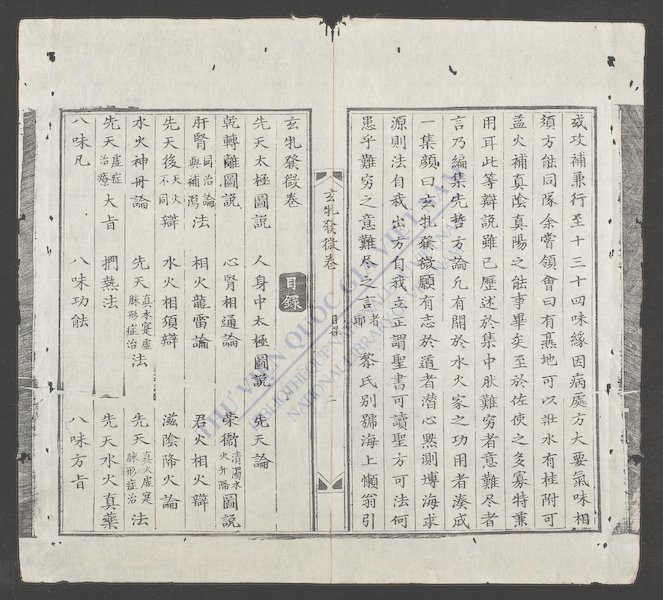 或攻補兼行至十三十四味緣因病處方大要氣味相
須方能同隊余嘗領會曰有熹地可以壯水有桂附可
益火補真陰真陽之能事畢矣至於佐使之多寡特兼
用耳此等辯説雖已歷述於集中猶難窮者意難尽者
言乃編集先哲方論凢有関於水火家之功用者湊成
一集顏曰玄牝發微願有志於道者潛心黙測博海求
源則法自我出方自我立正謂聖書可讀聖方可法何
患乎難窮之意難尽之言者耶黎氏別號海上懶翁引
玄牝發微卷
目錄
二
玄牝發微卷
目錄
先天太極圖説 人身中太極圖説 先天論
乾轉離圖説 心腎相通論 榮衛清濁水火升降圖説
肝腎同治論與補瀉法 相火龍雷論 君火相火辯
先天後天火不同辯 水火相須辯 滋陰降火論
水火神丹論 先天真水寔虛脉形症治法 先天真火虛寔脉形症治法
先天虛症治療大旨 捫𤍠法 先天水火真藥
八味凡 八味功能 八味方旨
THƯ VIỆN QUỐC GIA VIỆT NAM
BIBLIOTHÈQUE NATIONALE DU VIETNAM
NATIONAL LIBRARY OF VIETNAM